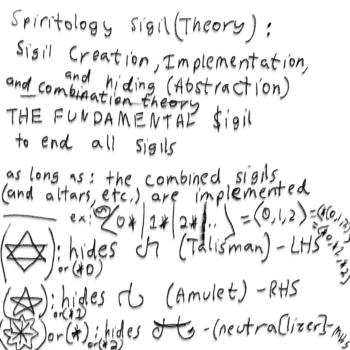 Spiritology Sigil (Theory) :
Sigil Creation, Implementation,
and hiding (Abstraction)
and combination theory
THE FUNDAMENTAL $igil
to end all sigils
as long as: the combined sigils
(and altars, etc.) are implemented
ex: <0*|1*|2*|..> = <0,1,2> =
( ): hides (Talisman) - LHS
or (*0)
( ): hides (Amulet) - RHS
or (*1)
( ) or (*): hides - (neutralizer) - MHS
or (*2)